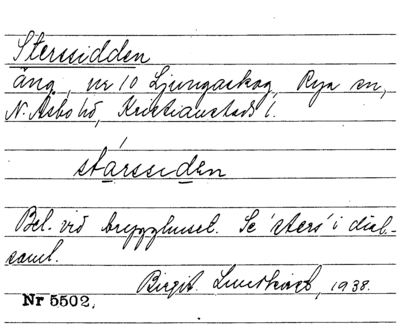 Sterssidden
äng, nr 10 Ljungaskog, Rya sn,
N. Åsbo hd, Kristianstads l.
stárssıden
Bel. vid brygghuset. Se 'sters' i dial-
saml.
Birgit Lundkvist, 1938.
Nr 5502.